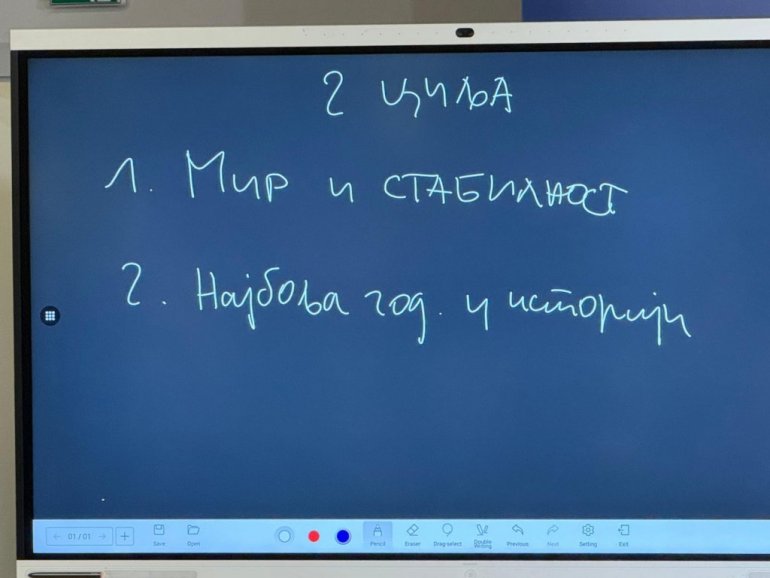 2 ЦИЉА
1. Мир и СТАБИЛНОСТ
2. Најбоља год. у историји
01 / 01
Save
Open
Pencil
Eraser
Drag-select
Double Writing
Previous
Next
Setting
Exit